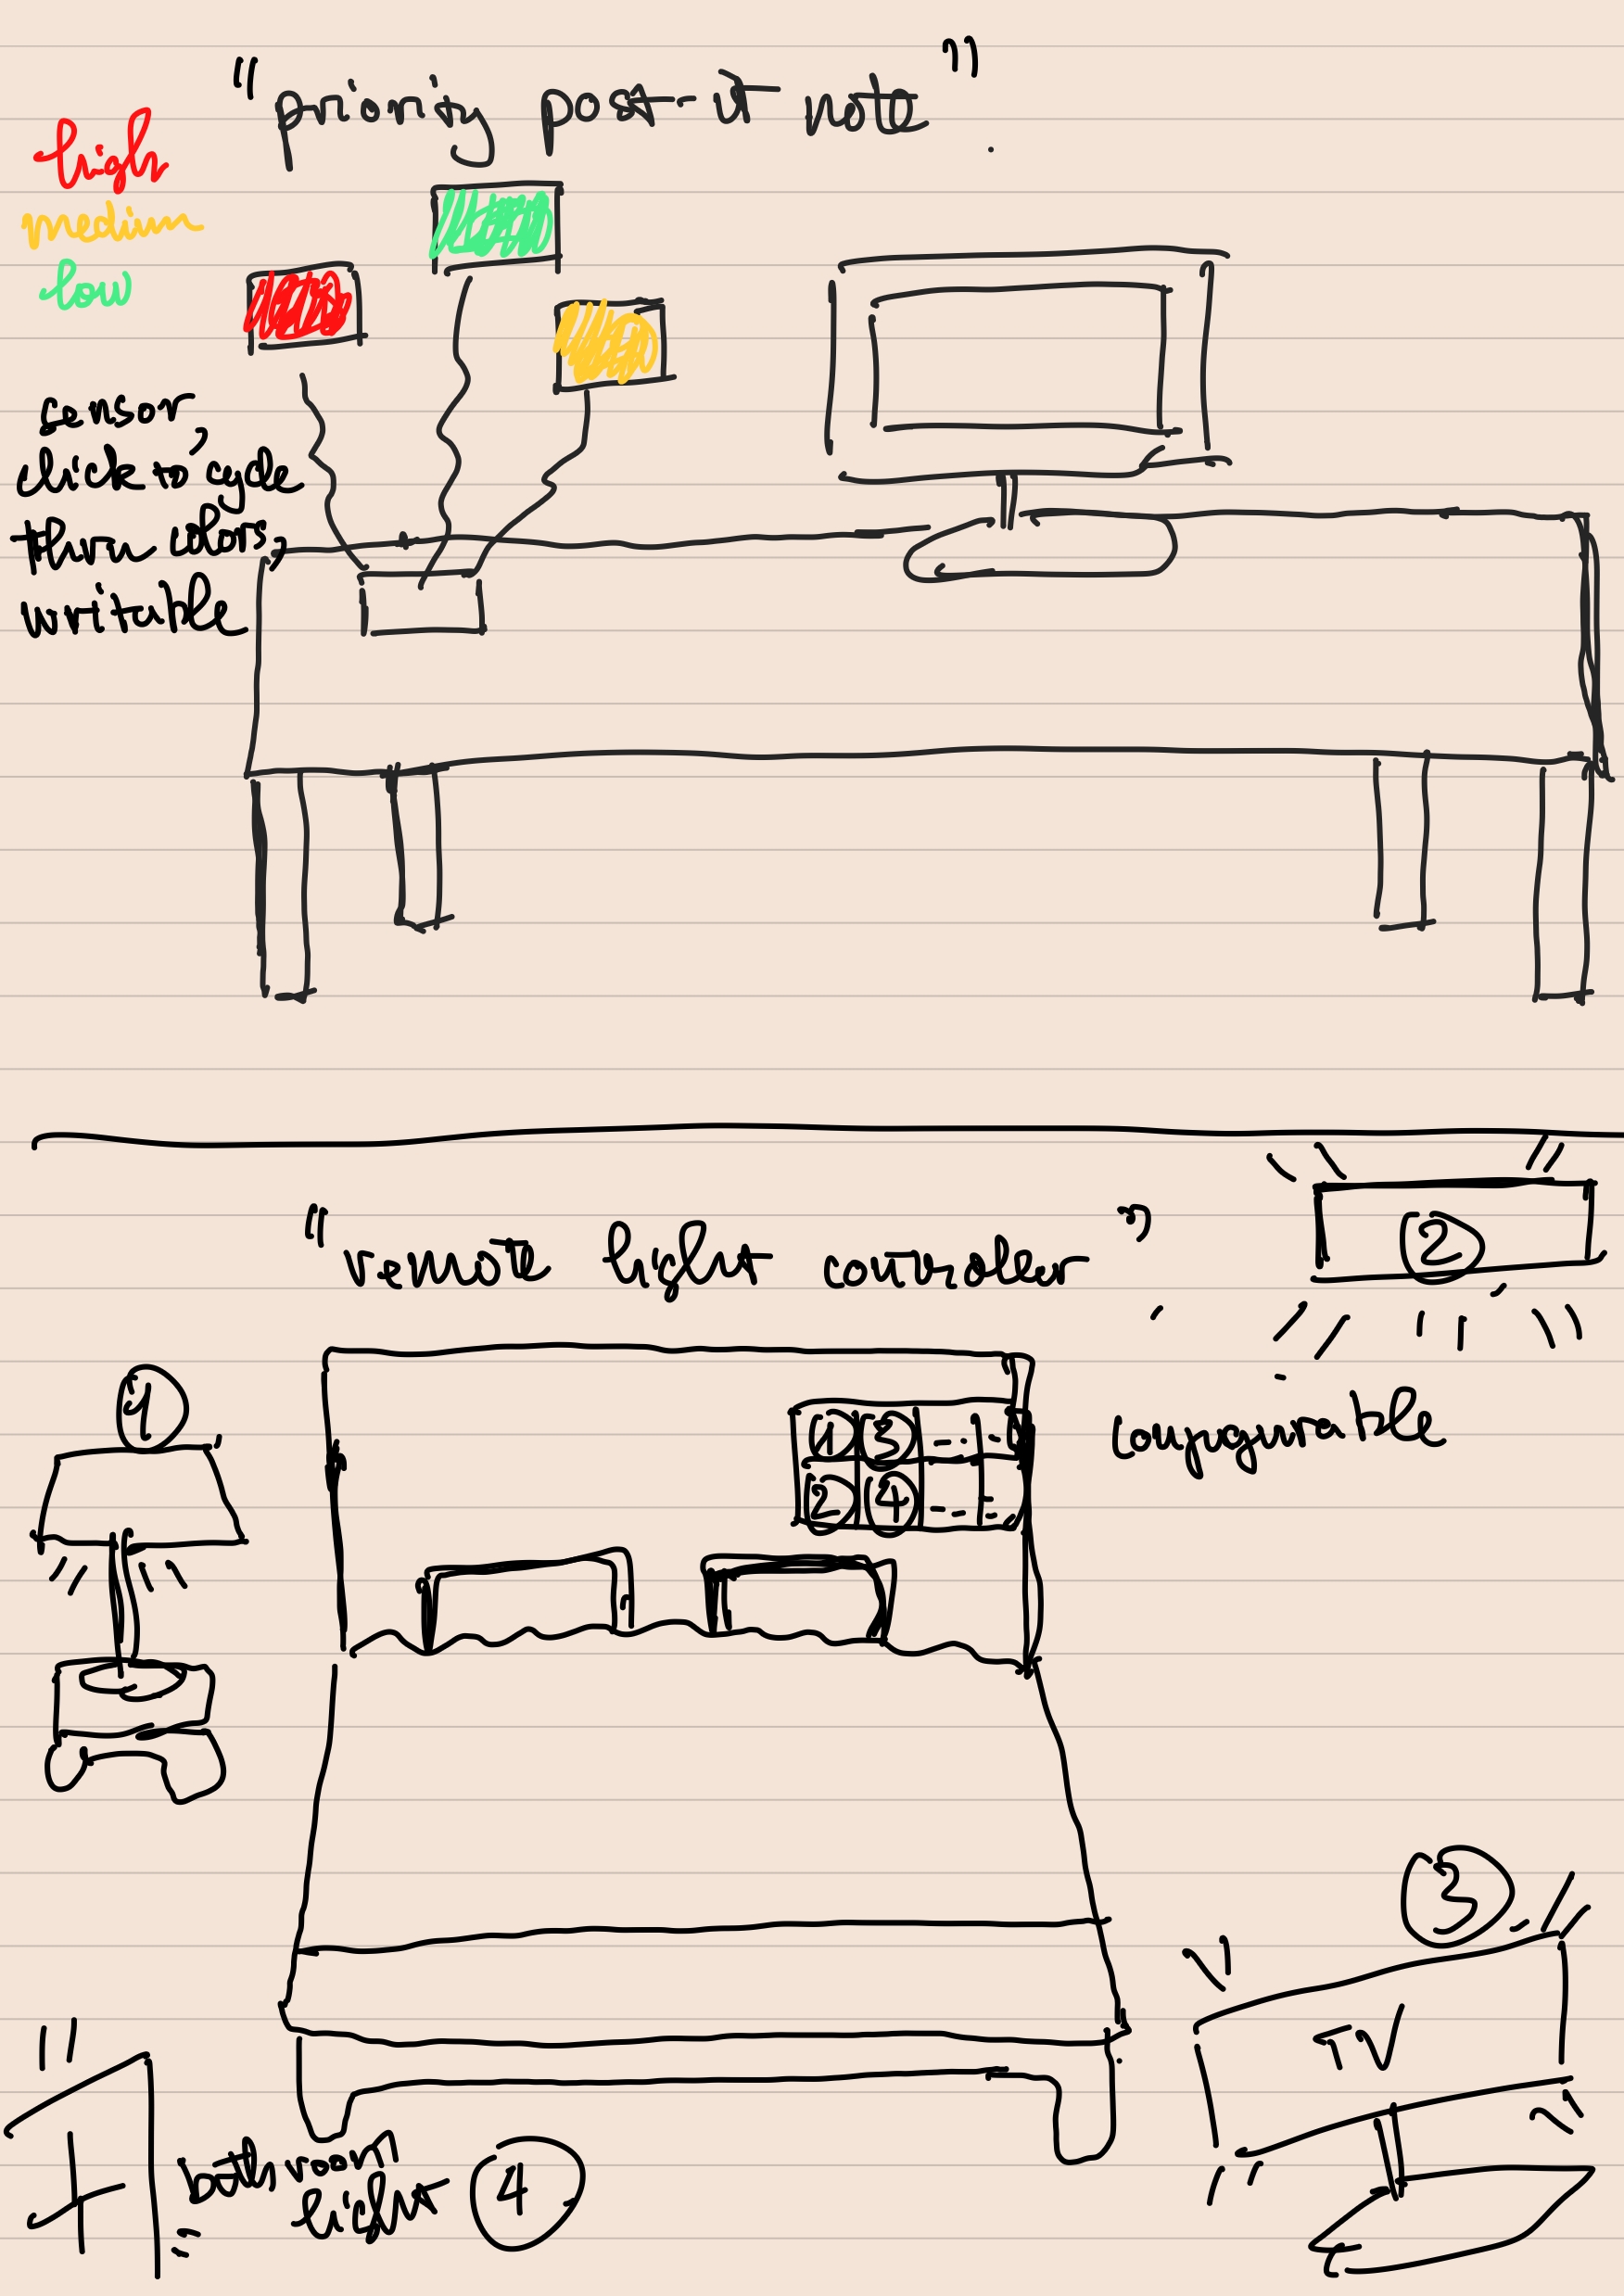 "priority post-it note"
high
medium
low
sensor,
click to cycle
thru colors,
writable
"remote light controller"
2
1
1 3
2 4
configurable
3
TV
bathroom
light 4